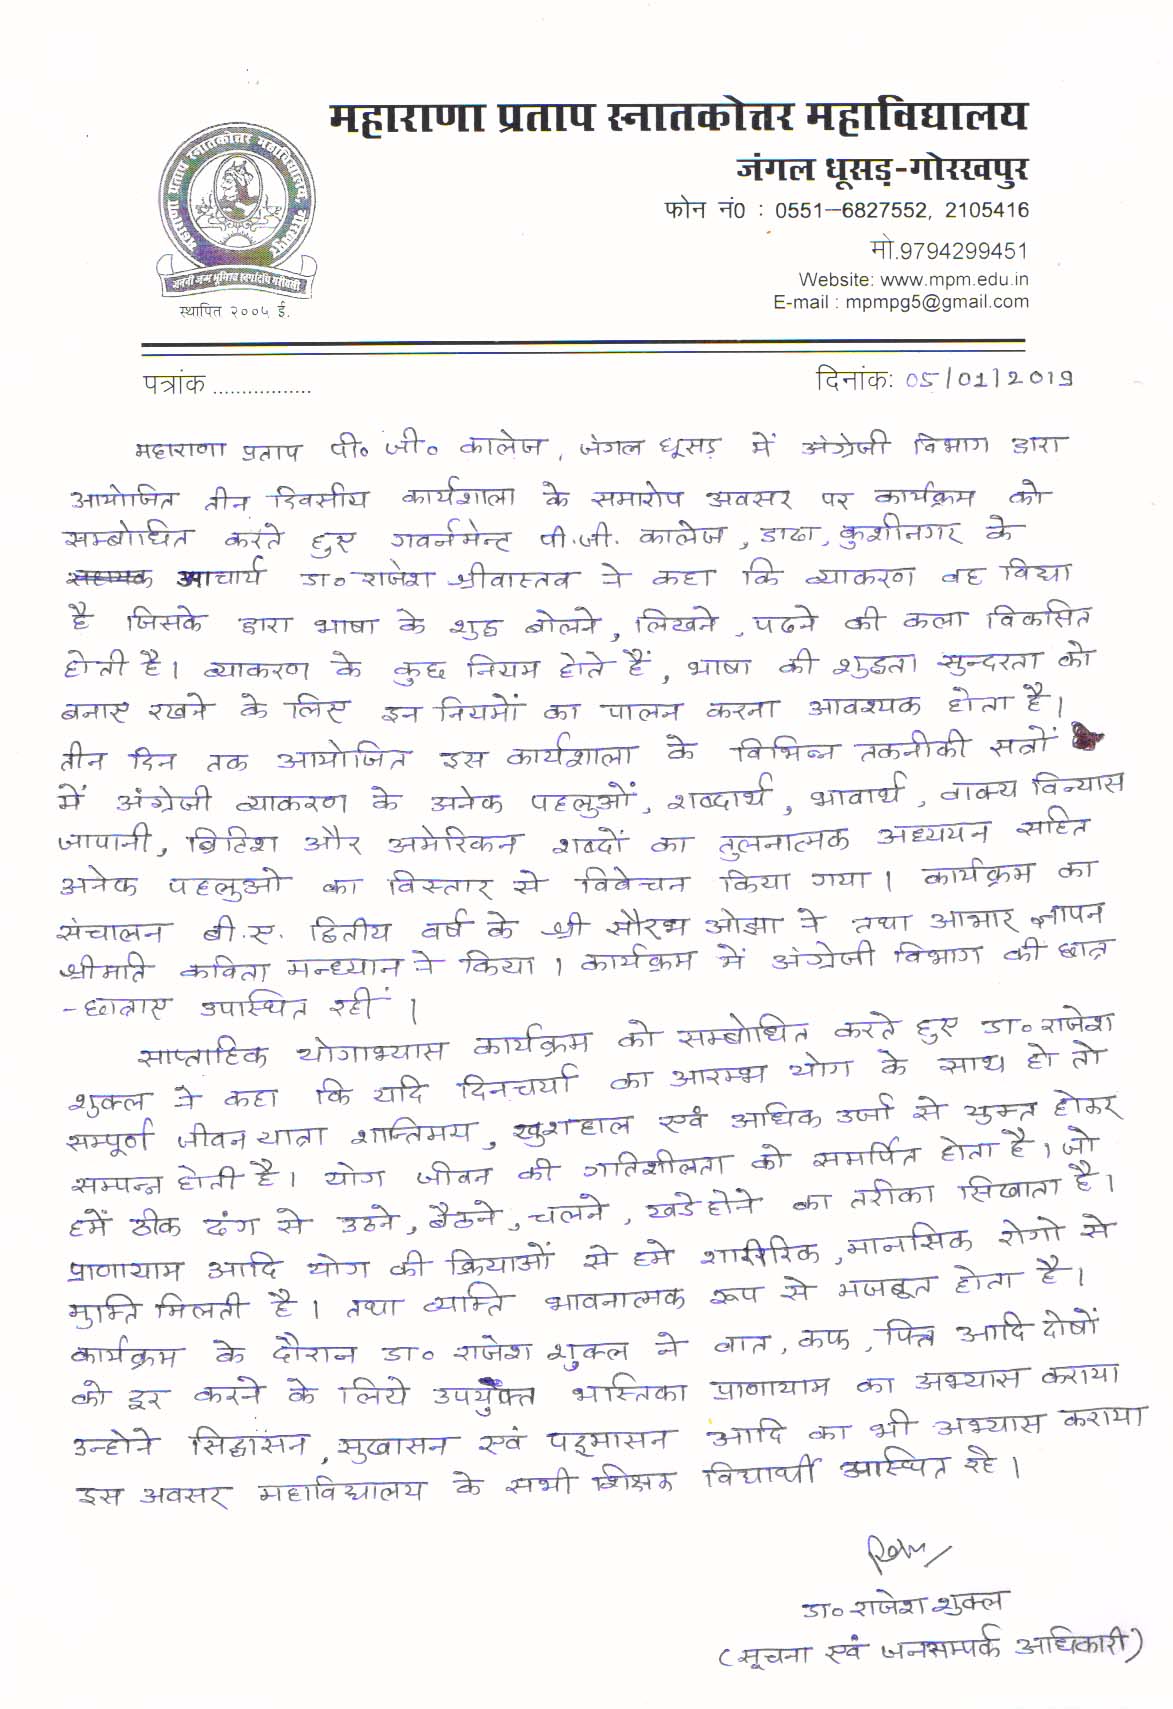 महाराणा प्रताप स्नातकोत्तर महाविद्यालय
जंगल धूसड़-गोरखपुर
फोन नं0 : 0551-6827552, 2105416
मो.9794299451
Website: www.mpm.edu.in
E-mail : mpmpg5@gmail.com
महाराणा प्रताप स्नातकोत्तर महाविद्यालय गोरखपुर
जननी जन्म भूमिश्च स्वर्गादपि गरीयसी
स्थापित २००५ ई.
पत्रांक .................
दिनांक: 05/01/2019
महाराणा प्रताप पी० जी० कालेज, जंगल धूसड़ में अंग्रेजी विभाग द्वारा
आयोजित तीन दिवसीय कार्यशाला के समारोप अवसर पर कार्यक्रम को
सम्बोधित करते हुए गवर्नमेन्ट पी.जी. कालेज, ढाढा, कुशीनगर के
सहायक आचार्य डा० राजेश श्रीवास्तव ने कहा कि व्याकरण वह विद्या
है जिसके द्वारा भाषा के शुद्ध बोलने, लिखने, पढने की कला विकसित
होती है। व्याकरण के कुछ नियम होते हैं, भाषा की शुद्धता सुन्दरता को
बनाए रखने के लिए इन नियमों का पालन करना आवश्यक होता है।
तीन दिन तक आयोजित इस कार्यशाला के विभिन्न तकनीकी सत्रों
में अंग्रेजी व्याकरण के अनेक पहलुओं, शब्दार्थ, भावार्थ, वाक्य विन्यास
जापानी, ब्रिटिश और अमेरिकन शब्दों का तुलनात्मक अध्ययन सहित
अनेक पहलुओ का विस्तार से विवेचन किया गया। कार्यक्रम का
संचालन बी.ए. द्वितीय वर्ष के श्री सौरभ ओझा ने तथा आभार ज्ञापन
श्रीमति कविता मन्ध्यान ने किया। कार्यक्रम में अंग्रेजी विभाग की छात्र
-छात्राए उपास्थित रहीं।
साप्ताहिक योगाभ्यास कार्यक्रम को सम्बोधित करते हुए डा० राजेश
शुक्ल ने कहा कि यदि दिनचर्या का आरम्भ योग के साथ हो तो
सम्पूर्ण जीवन यात्रा शान्तिमय, खुशहाल एवं अधिक उर्जा से युक्त होकर
सम्पन्न होती है। योग जीवन की गतिशीलता को समर्पित होता है। जो
हमें ठीक ढंग से उठने, बैठने, चलने, खडे होने का तरीका सिखाता है।
प्राणायाम आदि योग की क्रियाओं से हमे शारीरिक, मानसिक रोगो से
मुक्ति मिलती है। तथा व्यक्ति भावनात्मक रूप से मजबूत होता है।
कार्यक्रम के दौरान डा० राजेश शुक्ल ने वात, कफ, पित्त आदि दोषों
को दूर करने के लिये उपर्युक्त भस्त्रिका प्राणायाम का अभ्यास कराया
उन्होने सिद्धासन, सुखासन एवं पद्मासन आदि का भी अभ्यास कराया
इस अवसर महाविद्यालय के सभी शिक्षक विद्यार्थी उपस्थित रहे।
डा० राजेश शुक्ल
(सूचना एवं जनसम्पर्क अधिकारी)